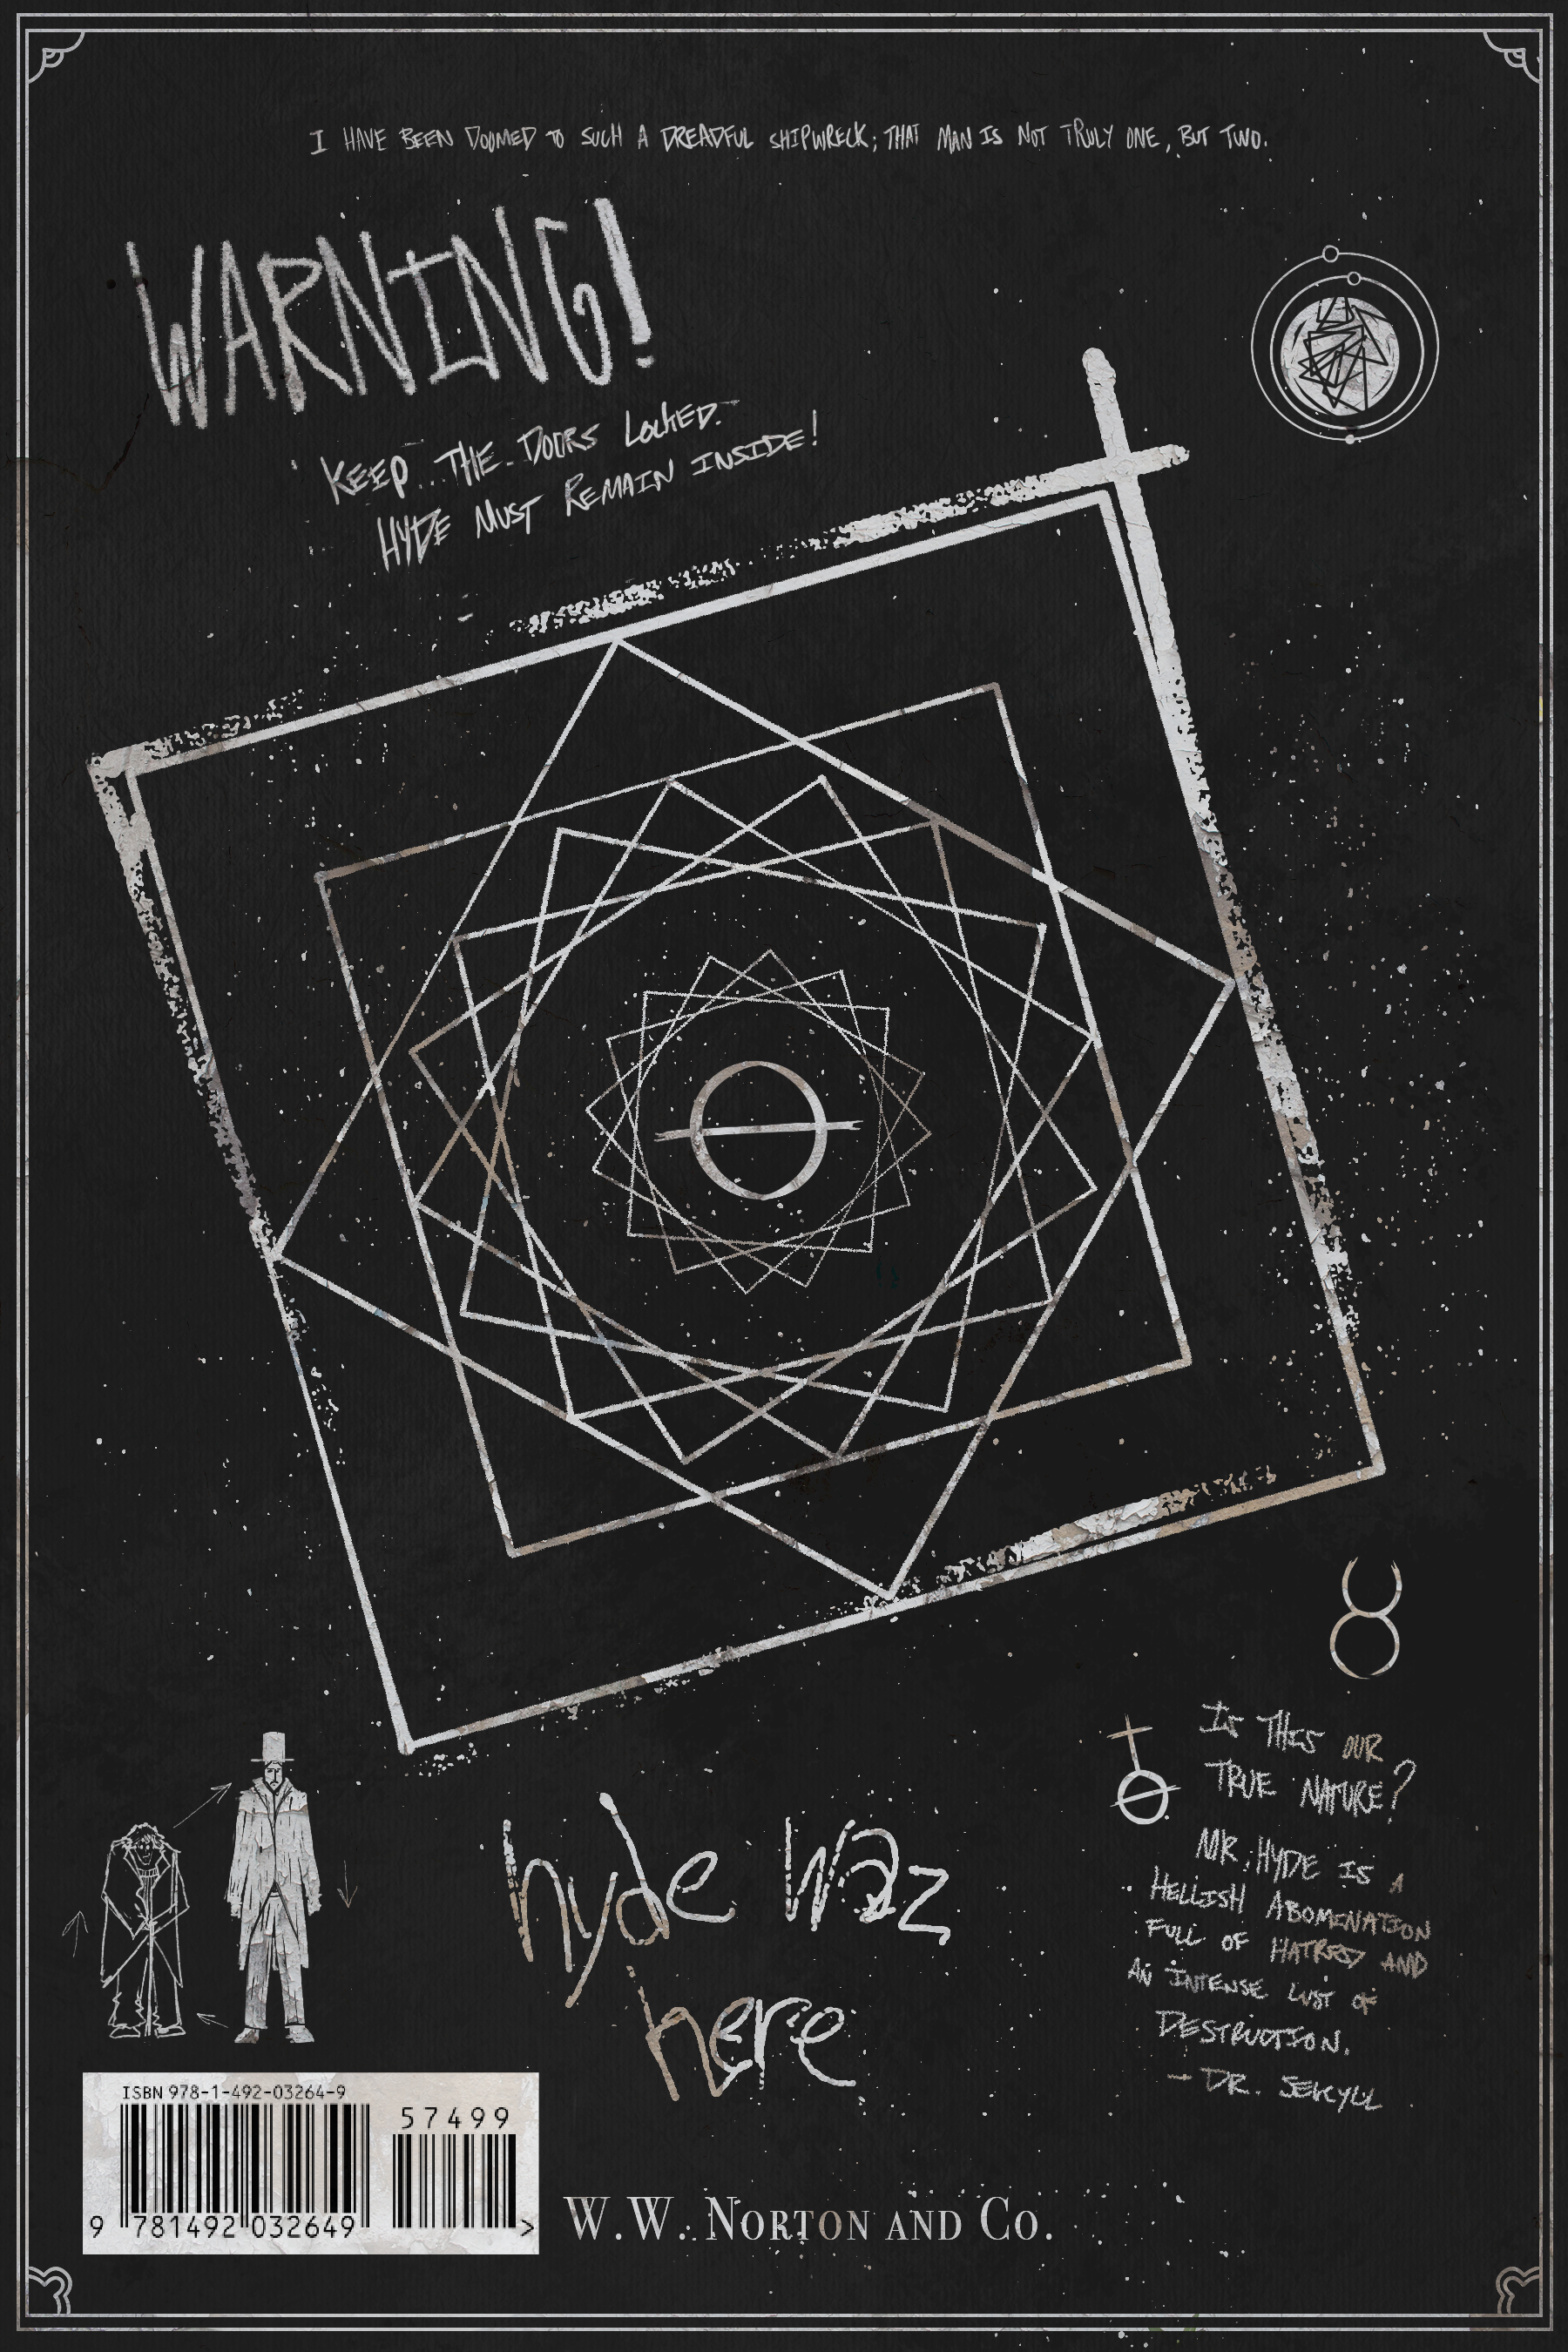 I HAVE BEEN DOOMED TO SUCH A DREADFUL SHIPWRECK; THAT MAN IS NOT TRULY ONE, BUT TWO.
WARNING!
KEEP THE DOORS LOCKED.
HYDE MUST REMAIN INSIDE!
IS THIS OUR
TRUE NATURE?
MR. HYDE IS A
HELLISH ABOMINATION
FULL OF HATRED AND
AN INTENSE LUST OF
DESTRUCTION.
- DR. JEKYLL
hyde waz
here
ISBN 978-1-492-03264-9
57499
9 781492 032649 >
W.W. NORTON AND CO.